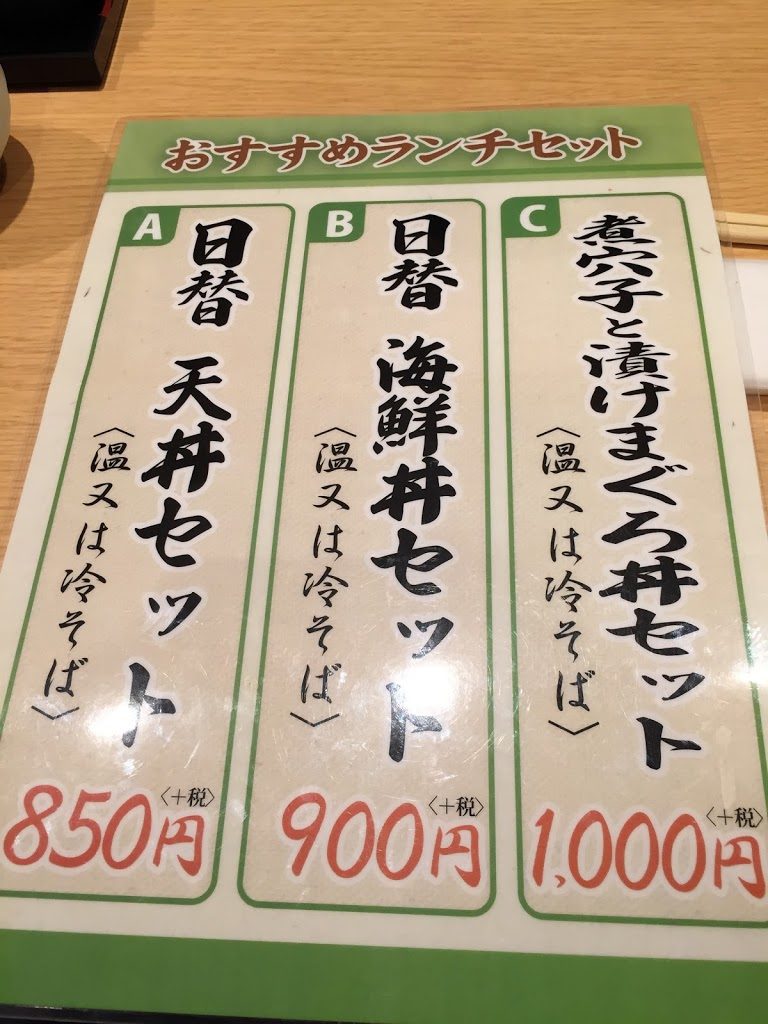 おすすめランチセット
A
日替 天丼セット
〈温又は冷そば〉
850円〈+税〉
B
日替 海鮮丼セット
〈温又は冷そば〉
900円〈+税〉
C
煮穴子と漬けまぐろ丼セット
〈温又は冷そば〉
1,000円〈+税〉